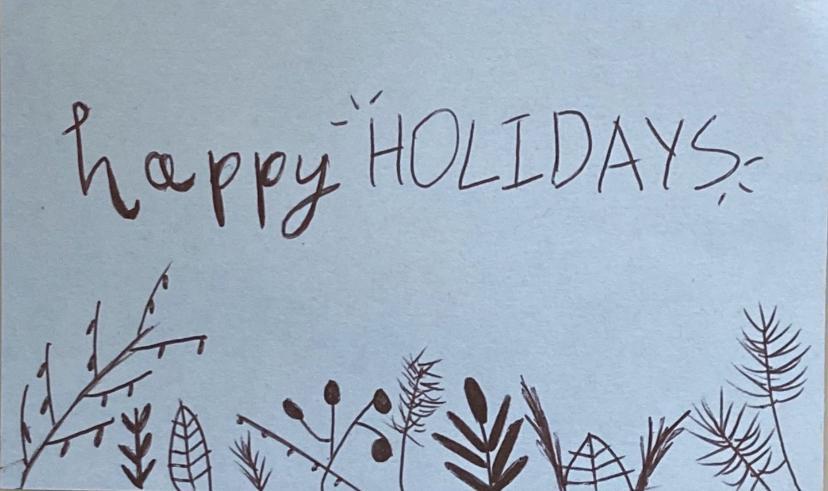 happy HOLIDAYS